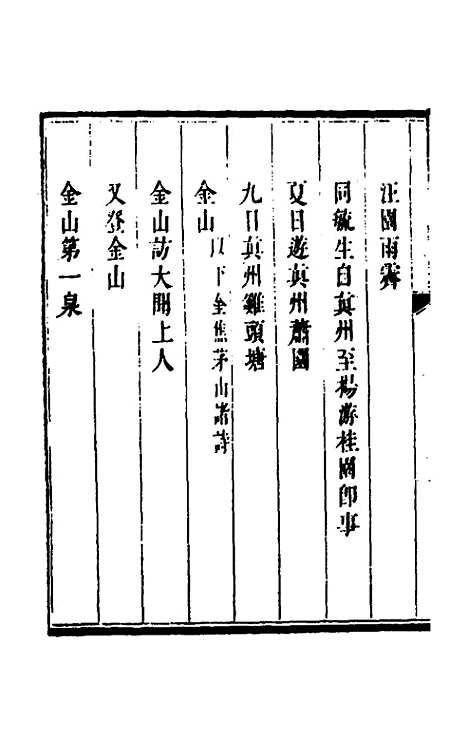 汪園雨霽
同毓生自真州至楊游桂園即事
夏日遊真州蕭園
九日真州雞頭塘
金山以下金焦茅山諸詩
金山訪大開上人
又登金山
金山第一泉